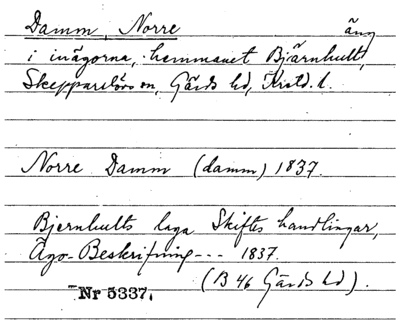 Damm, Norre äng
i inägorna, hemmanet Bjärnhult,
Skepparslövs sn, Gärds hd, Krstd. l.
Norre Damm (damm) 1837.
Bjernhults laga Skiftes handlingar,
Ägo-Beskrifning --- 1837.
(B 46 Gärds hd).
Nr 5337.